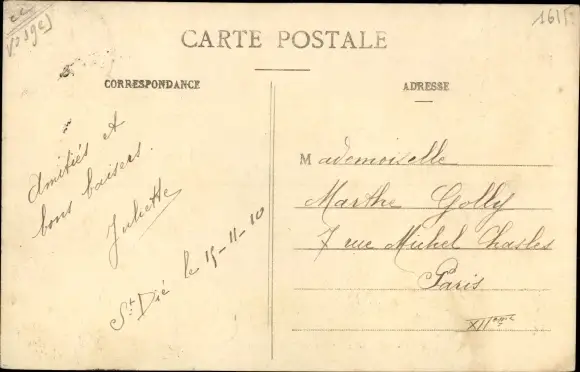 cc
Vosges
1615
CARTE POSTALE
CORRESPONDANCE
Amitiés et
bons baisers.
Juliette
St Dié le 15-11-10
ADRESSE
Mademoiselle
Marthe Golly
7 rue Michel Chasles
Paris
XIIème